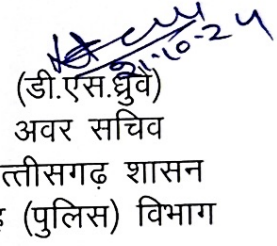 21-10-24
(डी.एस.ध्रुवे)
अवर सचिव
त्तीसगढ़ शासन
(पुलिस) विभाग